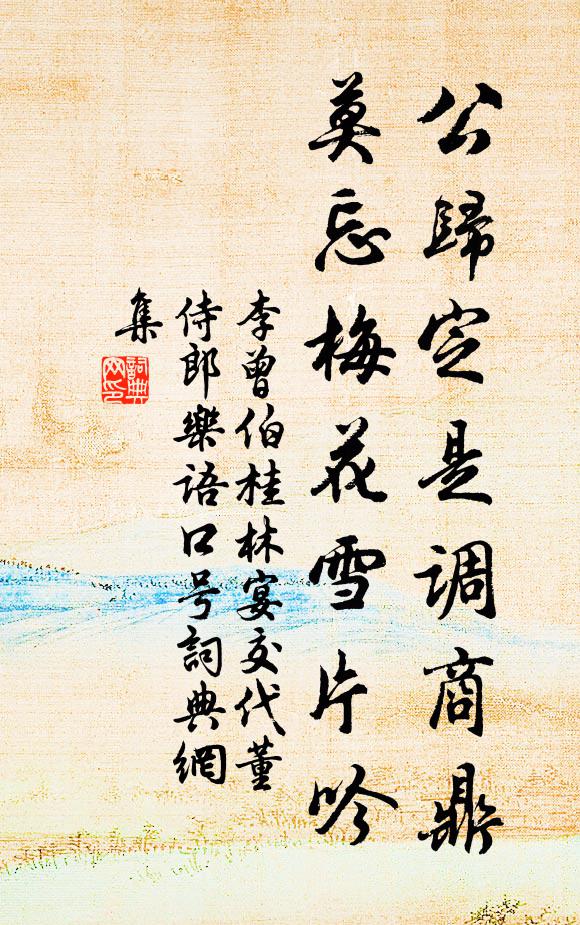 公歸定是调商鼎
莫忘梅花雪片吟
李曾伯桂林宴交代董
侍郎樂語口号詞典網
集
詞典
网印